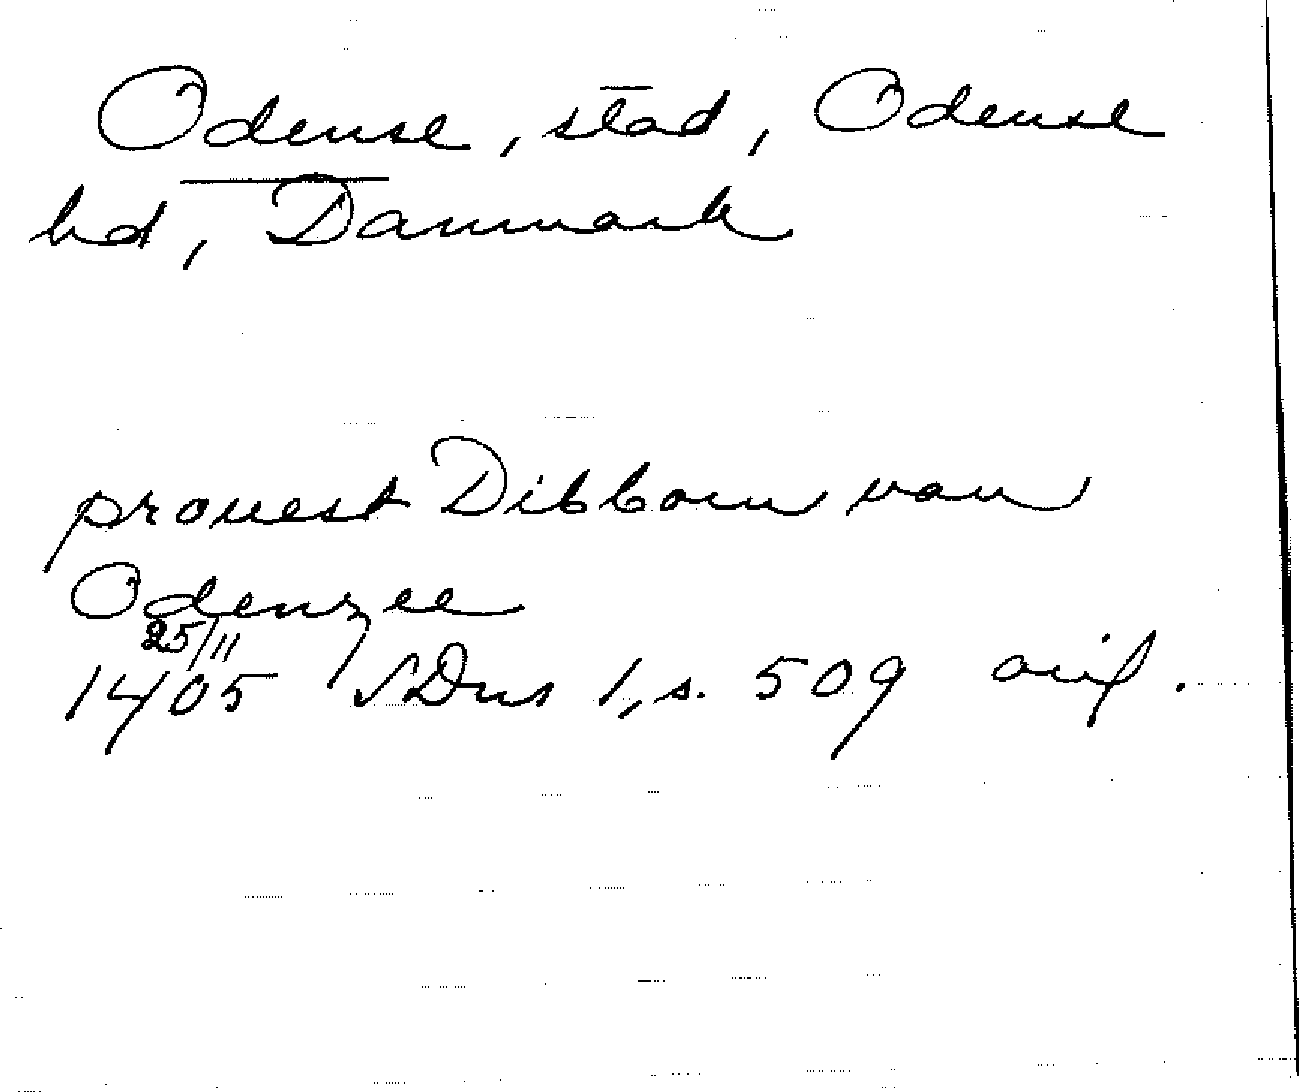 Odense, stad, Odense
hd, Danmark
prouest Dibborn van
Odenzee
25/11
1405 SDns 1, s. 509 avskr.